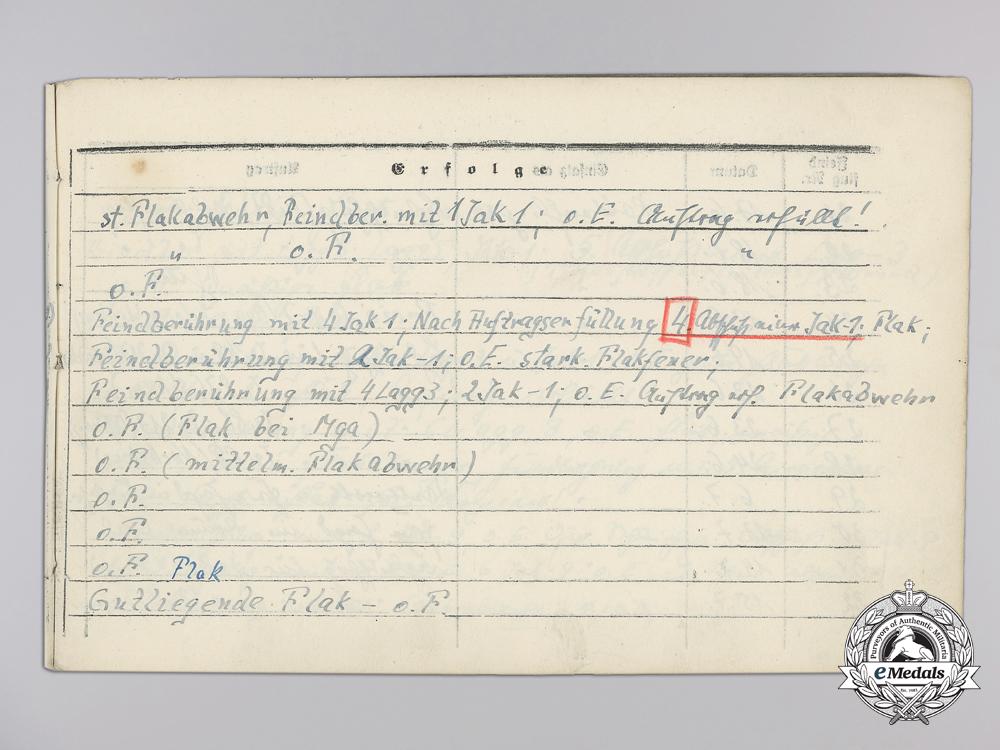 Erfolge
st. Flakabwehr, Feindber. mit 1 Jak 1; o. E. Auftrag erfüllt!
" o. F. "
o. F.
Feindberührung mit 4 Jak 1; Nach Auftragserfüllung 4. Abschuß einer Jak-1. Flak;
Feindberührung mit 2 Jak-1; o. E. stark. Flakfeuer;
Feindberührung mit 4 Lagg3; 2 Jak-1; o. E. Auftrag erf. Flakabwehr
o. F. (Flak bei Mga)
o. F. (mittelm. Flakabwehr)
o. F.
o. F.
o. F. Flak
Gutliegende Flak - o. F.
Purveyors of Authentic Militaria
eMedals